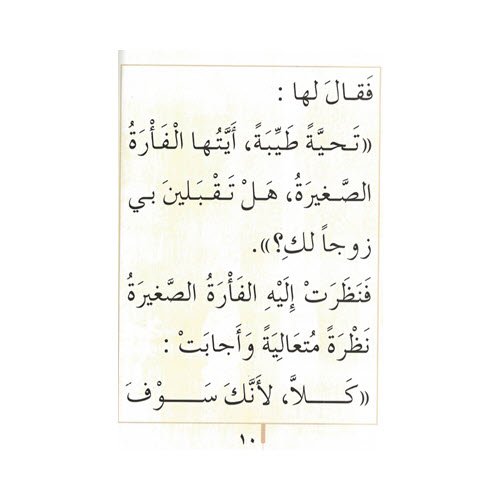 فَقالَ لها :
«تَحيَّةً طَيِّبَةً، أَيَّتُها الْفَأْرَةُ
الصَّغيرَةُ، هَلْ تَقْبَلينَ بي
زوجاً لكِ؟».
فَنَظَرَتْ إِلَيْهِ الفَأْرَةُ الصَّغيرَةُ
نَظْرَةً مُتَعالِيَةً وَأَجابَتْ :
«كَـــلاَّ، لأَنَّكَ سَـــوْفَ
١٠